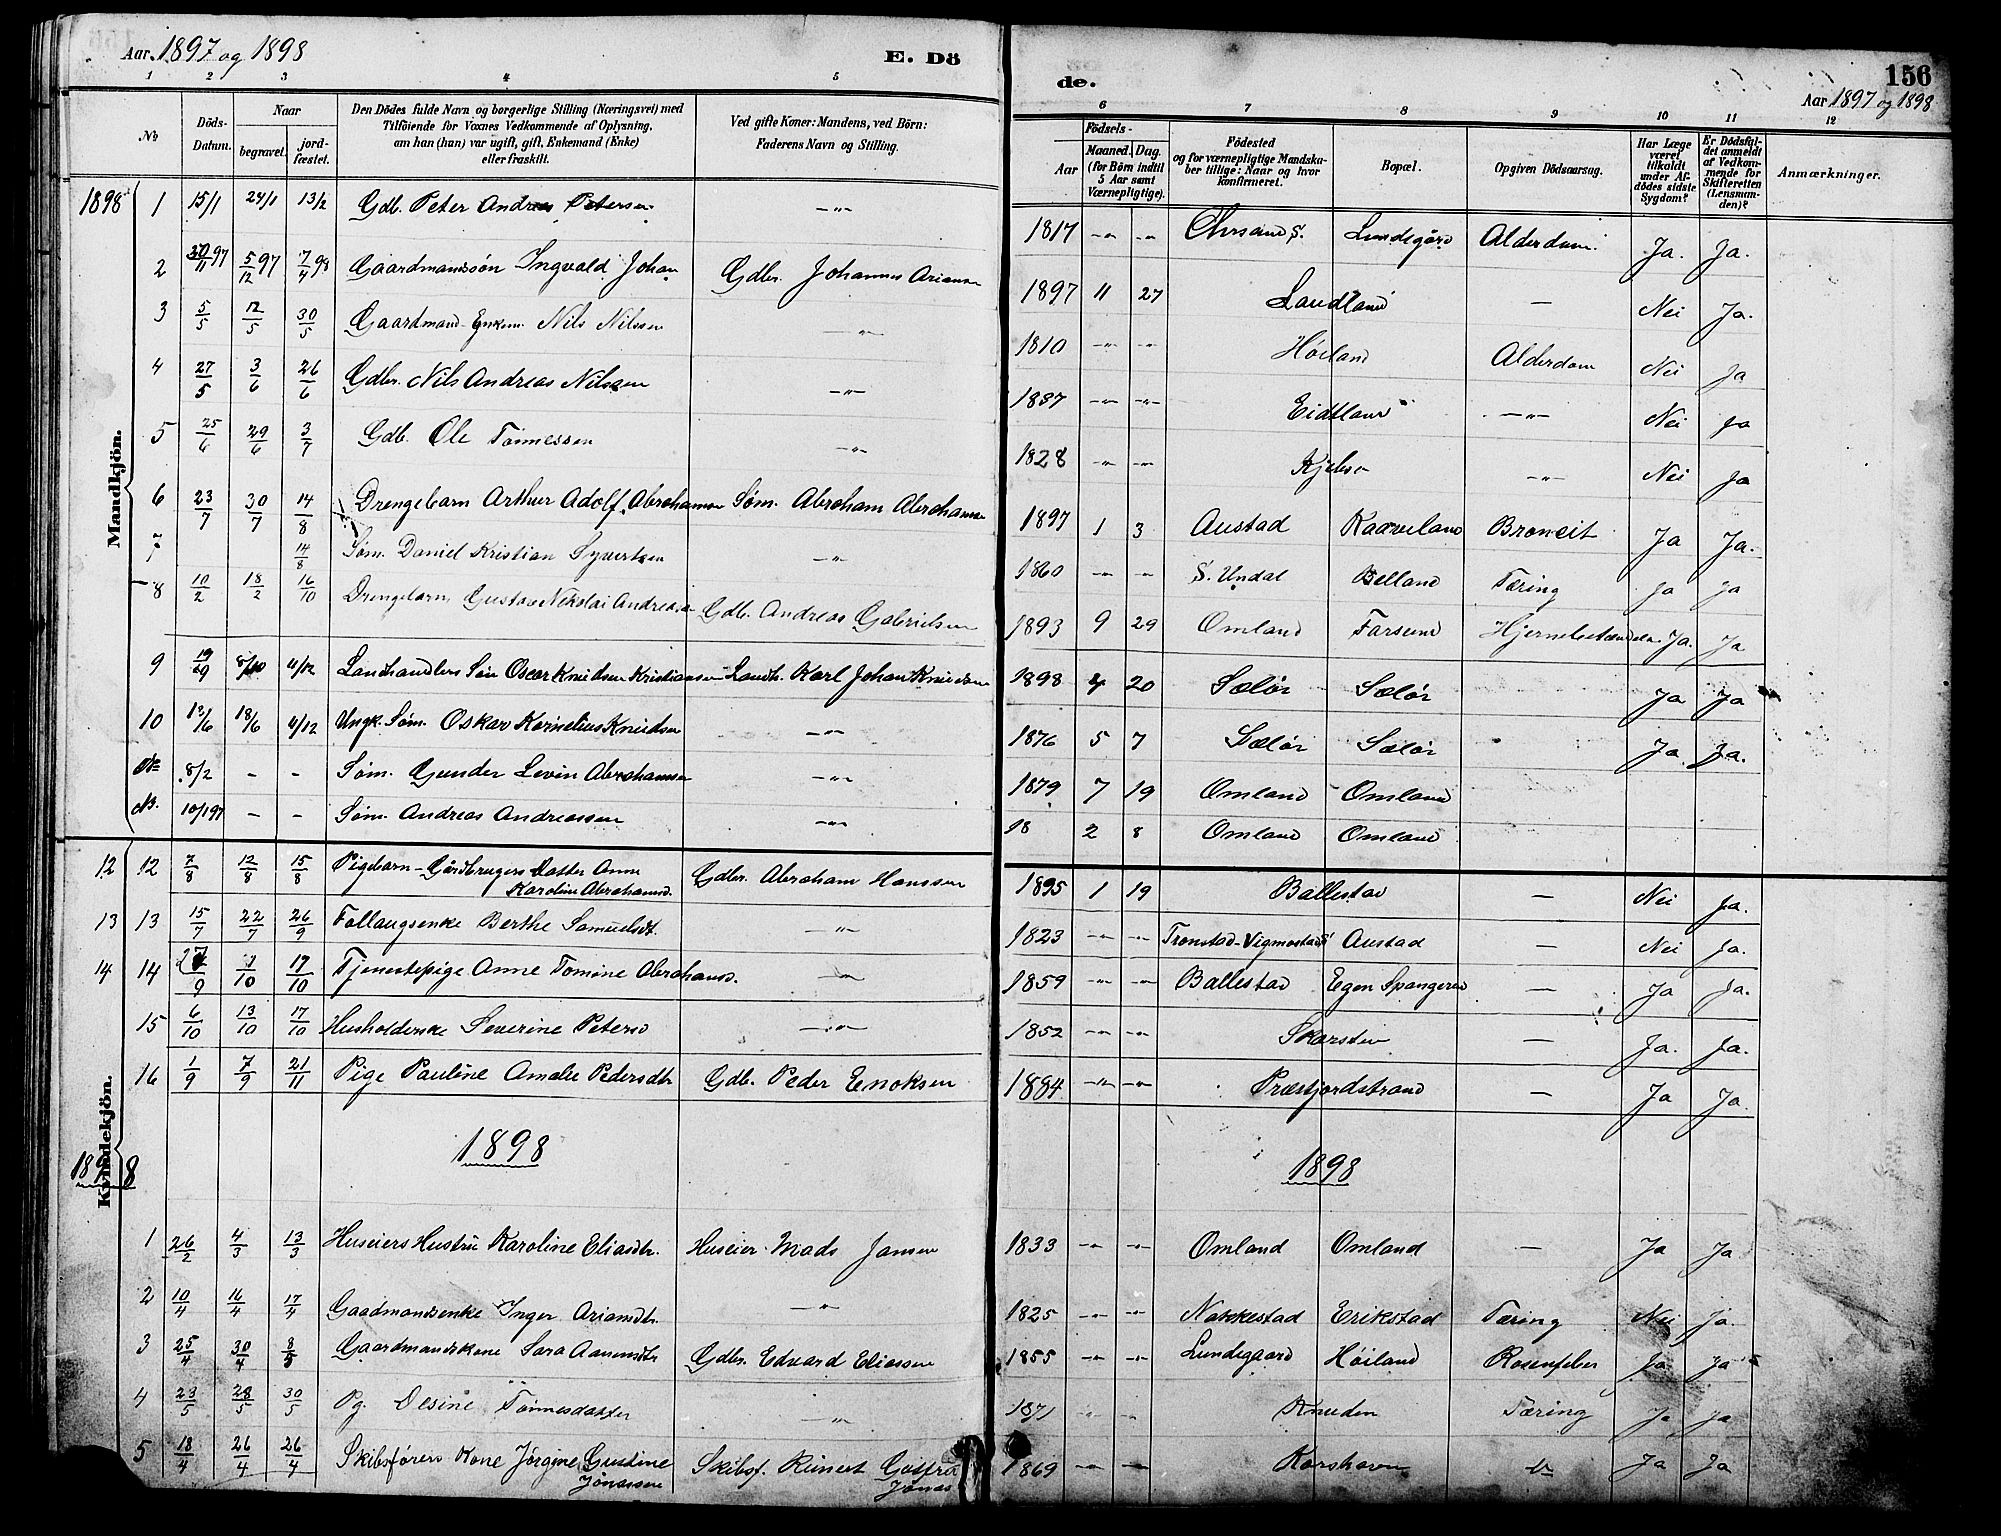 Aar 1897 og 1898
E. Dö
de.
156
Aar 1897 og 1898
1 2 3 4 5 6 7 8 9 10 11 12
No
Döds-Datum.
Naar
begravet.
jord-fæstet.
Den Dödes fulde Navn og borgerlige Stilling (Næringsvei) med
Tilföiende for Voxnes Vedkommende af Oplysning,
om han (hun) var ugift, gift, Enkemand (Enke)
eller fraskilt.
Ved gifte Koner: Mandens, ved Börn:
Faderens Navn og Stilling.
Födsels-
Aar
Maaned. Dag.
(for Börn indtil
5 Aar samt
Værnepligtige).
Födested
og for værnepligtige Mandska-
ber tillige: Naar og hvor
konfirmeret.
Bopæl.
Opgiven Dödsaarsag.
Har Læge
været
tilkaldt
under Af-
dödes sidste
Sygdom?
Er Dödsfal-
det anmeldt
af Vedkom-
mende for
Skifteretten
(Lensman-
den)?
Anmærkninger.
Mandkjön.
1898 1 15/1 24/1 13/2 Gdb. Peter Andreas Petersen -"- 1817 -"- -"- Chrsand S. Lundegård Alderdom. Ja. Ja.
2 30/11 97 5/12 97 7/4 98 Gaardmandssön Ingvald Johan Gdbr. Johannes Ariansen 1897 11 27 Laudland — Nei Ja.
3 5/5 12/5 30/5 Gaardmand-Enkem. Nils Nilssen -"- 1810 -"- -"- Høiland Alderdom Nei Ja
4 27/5 3/6 26/6 Gdbr. Nils Andreas Nilssen -"- 1837 -"- -"- Eidsland -"- Nei Ja
5 25/6 29/6 3/7 Gdb. Ole Tönnessen -"- 1828 -"- -"- -"- Nei Ja
6 23/7 30/7 14/8 Drengebarn Arthur Adolf Abrahamsen Søm. Abraham Abrahamsen 1897 1 3 Austad Kaaveland Broncit Ja Ja.
7 14/8 Søm. Daniel Kristian Syvertsen -"- 1860 -"- -"- S. Undal Belland Tæring Ja Ja
8 10/2 18/2 16/10 Drengebarn Gustav Nikolai Andreasen Gdb. Andreas Gabrielsen 1893 9 29 Omland Farsund Hjernebetændelse Ja. Ja
9 19/9 8/10 4/12 Landhandlers Sön Oscar Knudsen Kristiansen Landh. Karl Johan Knudsen 1898 4 20 Sælör Sælör Ja Ja
10 12/6 18/6 4/12 Ungk. Søm. Oskar Kornelius Knudsen -"- 1876 5 7 Sælör Sælör Ja Ja.
8/2 - - Søm. Gunder Levin Abrahamsen -"- 1879 7 19 Omland Omland
NB. 10/1 97 - - Søm. Andreas Andreassen -"- 18 2 8 Omland Omland
Kvindekjön.
12 12 7/8 12/8 15/8 Pigebarn - Gårdbrugers Datter Anne
Karoline Abrahamsd. Gdbr. Abraham Hanssen 1895 1 19 Ballestad — Nei Ja.
13 13 15/7 22/7 26/9 Follaugsenke Berthe Samuelsdt. -"- 1823 -"- -"- Tronstad-Vigmostad Austad — Nei Ja.
14 14 27/9 1/10 17/10 Tjenestepige Anne Tomine Abrahamsd. -"- 1859 -"- -"- Ballestad Egen Spangereid — Ja Ja.
15 6/10 13/10 17/10 Husholderske Severine Petersd -"- 1852 -"- -"- Skarstein — Ja. Ja.
16 1/9 7/9 21/11 Pige Pauline Amalie Pedersdtr Gdb. Peder Enoksen 1884 -"- -"- Præstjordstrand — Ja Ja.
1898 1898
1898
1 26/2 4/3 13/3 Huseiers Hustru Karoline Eliasdtr. Huseier Mads Jansen 1833 -"- -"- Omland Omland — Ja Ja
2 10/4 16/4 17/4 Gaadmandsenke Inger Ariansdtr. -"- 1825 -"- -"- Nakkestad Erikstad Tæring Nei Ja.
3 25/4 30/4 8/5 Gaardmandskone Sara Aanensdtr Gdbr. Edvard Eliassen 1855 -"- -"- Lundegaard Høiland Rosenfeber Ja Ja
4 23/5 28/5 30/5 Pg. Oesine Tönnesdatter -"- 1871 -"- -"- Knuden Tæring Ja Ja
5 18/4 26/4 26/4 Skibsförers Kone Jörgine Gustine
Jönassen Skibsf. Reinert
Jonas 1869 -"- -"- Korshavn Ja Ja